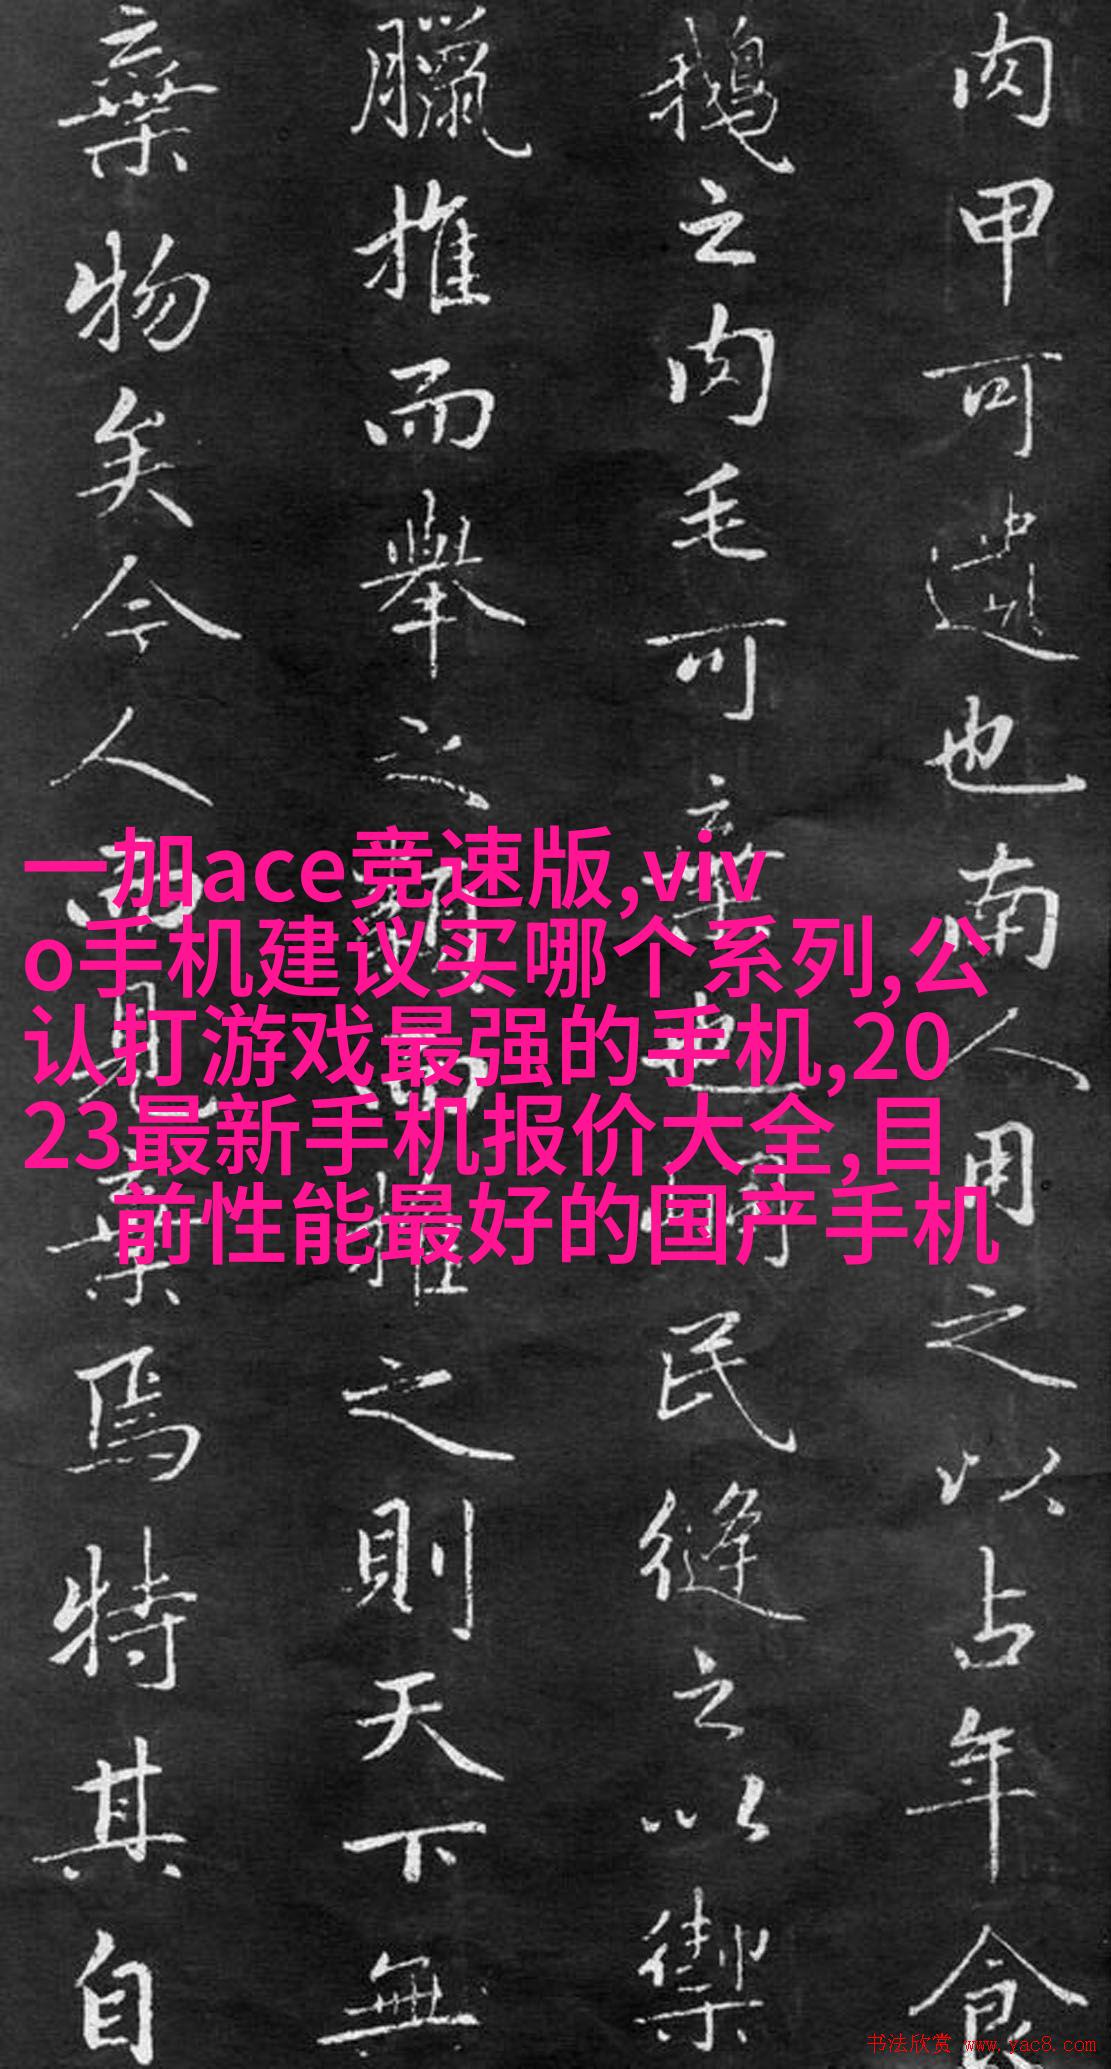 肉甲可遺也南人用之以占年食
鵝之肉毛可棄也峒民縫之以禦
臘推而舉之類而推之則天下無
棄物矣今人而見棄焉特其自
一加ace竞速版,viv
o手机建议买哪个系列,公
认打游戏最强的手机,20
23最新手机报价大全,目
前性能最好的国产手机
书法欣赏 www.yac8.com